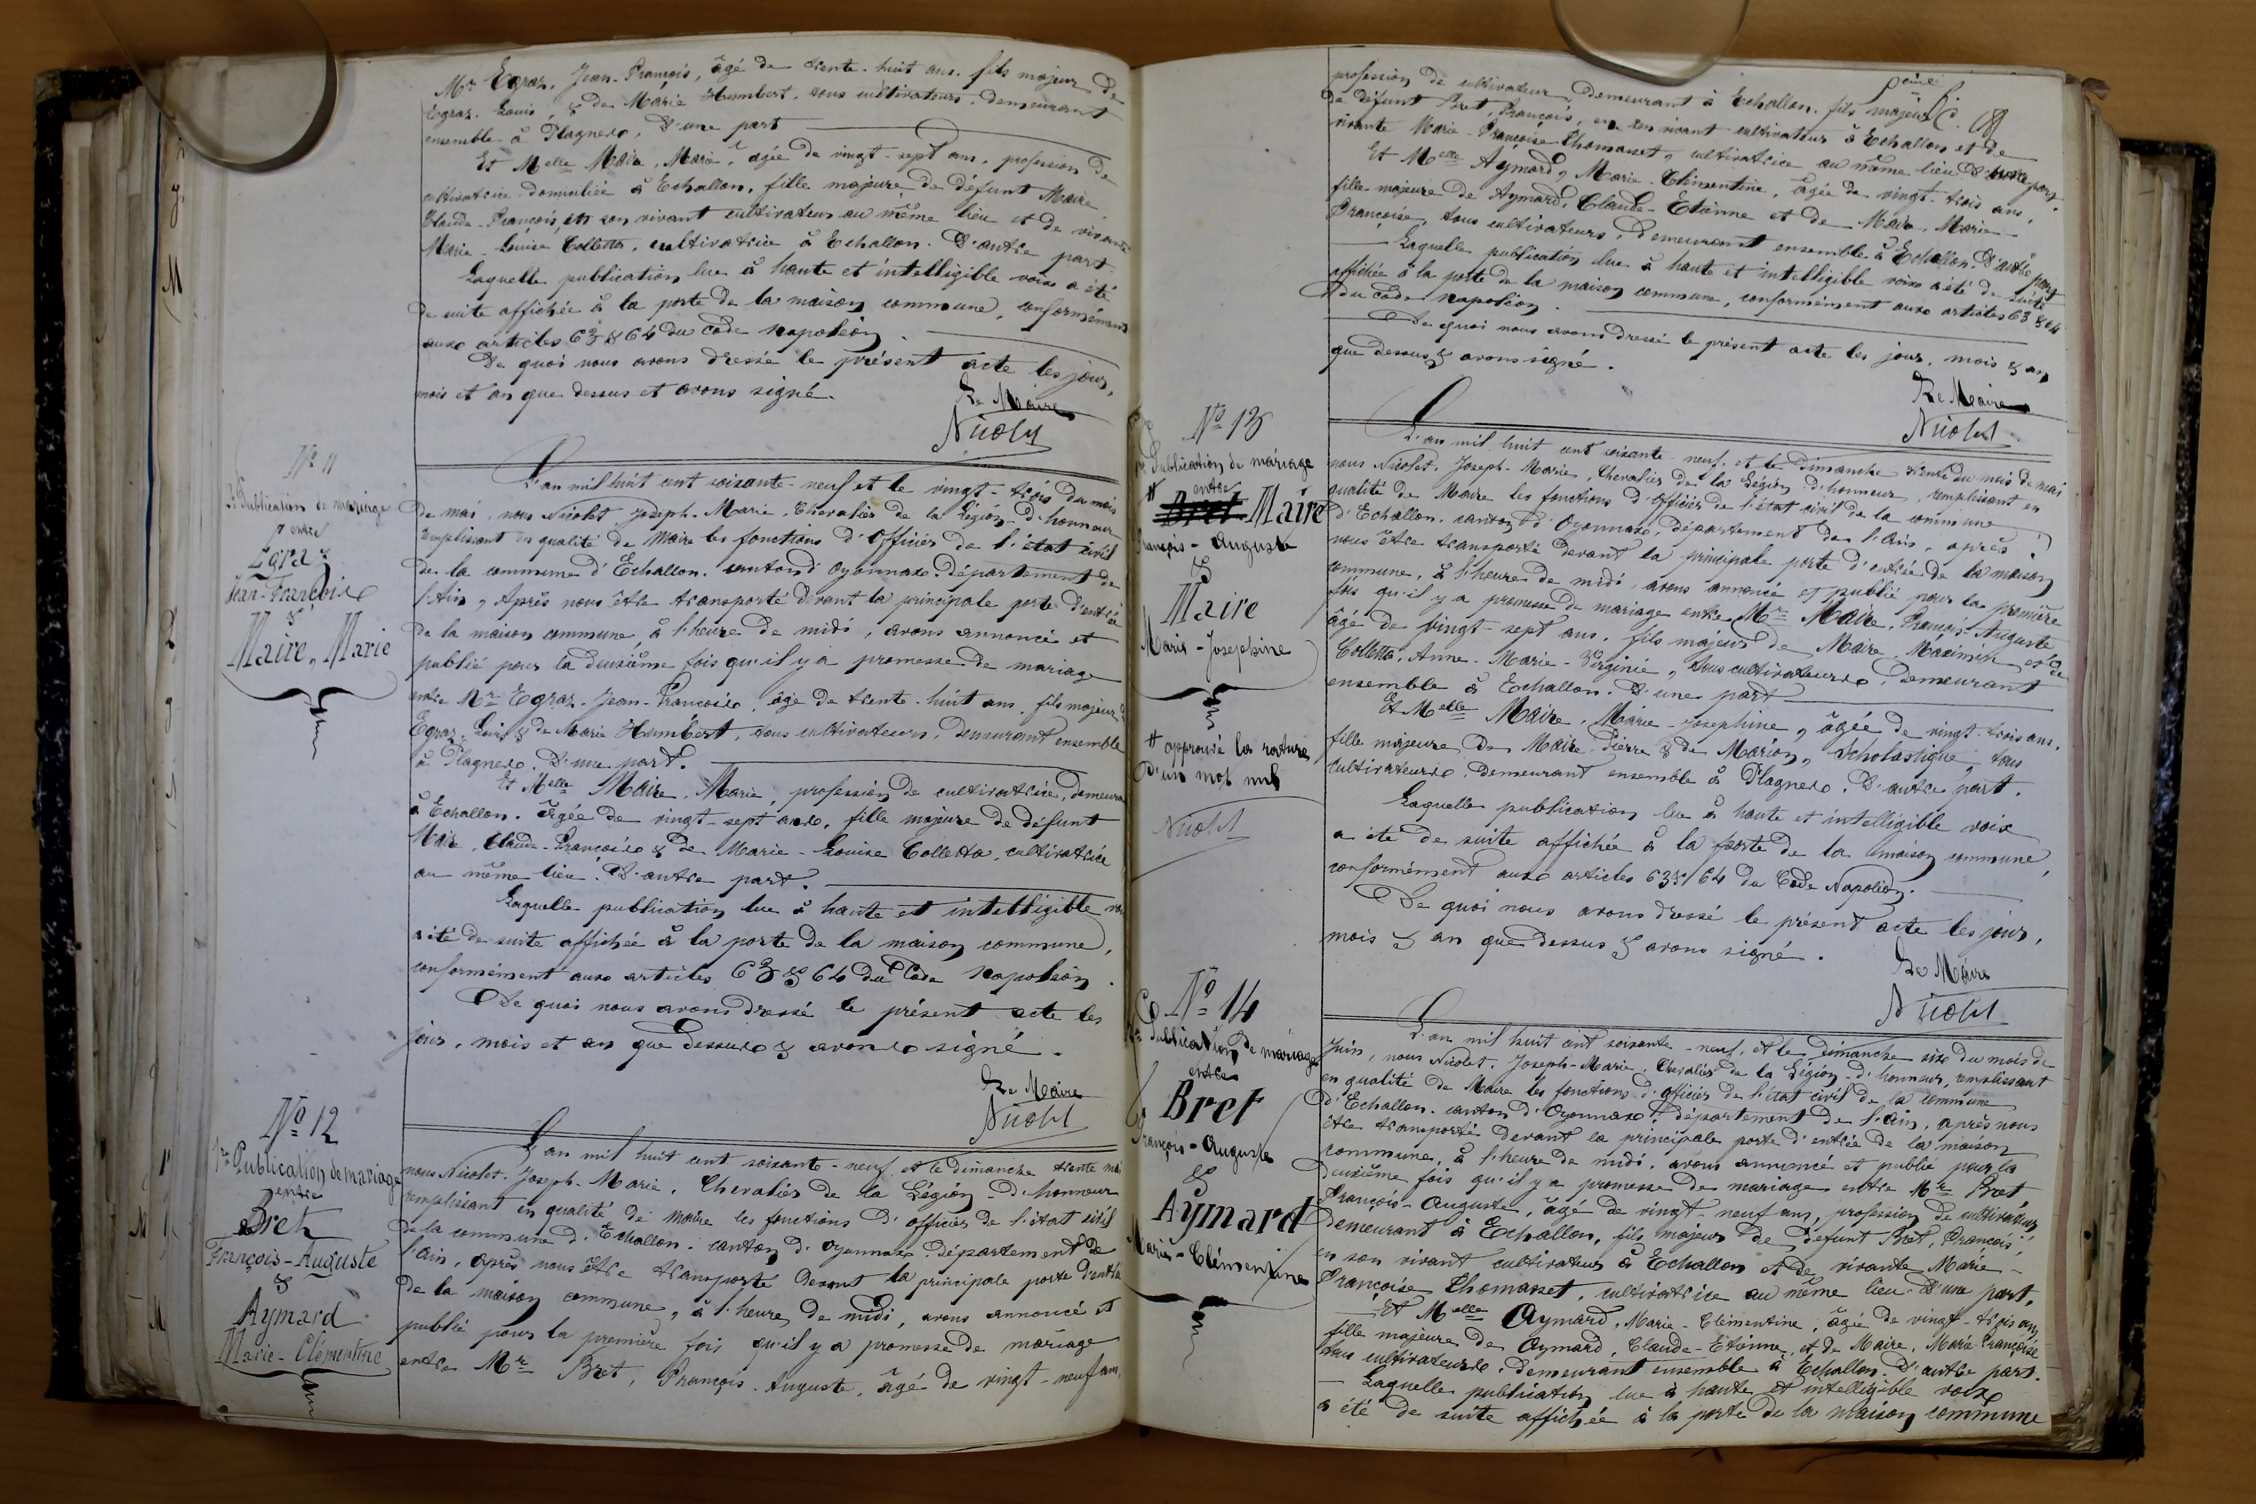 Mr Egraz, Jean-François, âgé de trente-huit ans. fils majeur de
Egraz, Louis, & de Marie Humbert, tous cultivateurs, demeurant
ensemble à Plagnes. D'une part
Et Melle Maire, Marie, agée de vingt-sept ans, profession de
cultivatrice domiciliée à Echallon, fille majeure de défunt Maire
Claude-François, en son vivant cultivateur au même lieu et de vivante
Marie-Louise Colletta, cultivatrice à Echallon. D'autre part.
Laquelle publication lue à haute et intelligible voix a été
de suite affichée à la porte de la maison commune, conformément
aux articles 63 & 64 du code Napoléon
De quoi nous avons dressé le présent acte les jour,
mois et an que dessus et avons signé.
Le Maire
Nicolet
No 11
2e Publication de mariage
entre
Egraz
Jean-François
&
Maire, Marie
L'an mil huit cent soixante-neuf et le vingt-trois du mois
de mai, nous Nicolet Joseph-Marie, Chevalier de la Légion-d'honneur
remplissant en qualité de Maire les fonctions d'Officier de l'état civil
de la commune d'Echallon, canton d'Oyonnax, département de
l'Ain, Après nous être transporté devant la principale porte d'entrée
de la maison commune, à l'heure de midi, avons annoncé et
publié pour la deuxième fois qu'il y a promesse de mariage
entre Mr Egraz, Jean-François, âgé de trente-huit ans, fils majeur d
Egraz, Louis & de Marie Humbert, tous cultivateurs, demeurant ensemble
à Plagnes. D'une part.
Et Melle Maire, Marie, profession de cultivatrice, demeura
à Echallon, âgée de vingt-sept ans, fille majeure de défunt
Maire, Claude-François & de Marie-Louise Colletta, cultivatrice
au même lieu. D'autre part.
Laquelle publication lue à haute et intelligible voi
a été de suite affichée à la porte de la maison commune,
conformément aux articles 63 & 64 du Code Napoléon.
De quoi nous avons dressé le présent acte les
jour, mois et an que dessus & avons signé.
Le Maire
Nicolet
No 12
1re Publication de mariage
entre
Bret
François-Auguste
&
Aymard
Marie-Clémentine
L'an mil huit cent soixante-neuf et le dimanche trente mai
nous Nicolet-Joseph-Marie, Chevalier de la Légion-d'honneur
remplissant en qualité de Maire les fonctions d'officier de l'état civil
de la commune d'Echallon, canton d'Oyonnax, département de
l'Ain, après nous être transporté devant la principale porte d'entrée
de la maison commune, à l'heure de midi, avons annoncé et
publié pour la première fois qu'il y a promesse de mariage
entre Mr Bret, François-Auguste, âgé de vingt-neuf ans,
profession de cultivateur, demeurant à Echallon, fils majeur
de défunt Bret, François, en son vivant cultivateur à Echallon et de
vivante Marie-Françoise Thomasset, cultivatrice au même lieu D'une part.
Et Melle Aymard, Marie-Clémentine, âgée de vingt-trois ans,
fille majeure de Aymard, Claude-Etienne et de Maire, Marie-
Françoise, tous cultivateurs, demeurant ensemble à Echallon. D'autre part
Laquelle publication lue à haute et intelligible voix a été de suite
affichée à la porte de la maison commune, conformément aux articles 63 & 64
du code Napoléon.
De quoi nous avons dressé le présent acte les jour, mois & an
que dessus & avons signé.
Le Maire
Nicolet
No 13
1re Publication de mariage
entre
# Bret Maire
François-Auguste
&
Maire
Marie-Josephine
# approuvé la rature
d'un mot nul
Nicolet
L'an mil huit cent soixante-neuf, et le dimanche trente du mois de mai
nous Nicolet, Joseph-Marie, Chevalier de la Légion d'honneur, remplissant en
qualité de Maire les fonctions d'Officier de l'état civil de la commune
d'Echallon, canton d'Oyonnax, département de l'Ain, après
nous être transporté devant la principale porte d'entrée de la maison
commune, à l'heure de midi, avons annoncé et publié pour la première
fois qu'il y a promesse de mariage entre Mr Maire, François-Auguste
âgé de vingt-sept ans, fils majeur de Maire, Maximin et de
Colletta, Anne-Marie-Virginie, tous cultivateurs, demeurant
ensemble à Echallon. D'une part
Et Melle Maire, Marie-Josephine, âgée de vingt-trois ans,
fille majeure de Maire, Pierre & de Marion, Scholastique, tous
cultivateurs, demeurant ensemble à Plagnes. D'autre part.
Laquelle publication lue à haute et intelligible voix
a été de suite affichée à la porte de la maison commune,
conformément aux articles 63 & 64 du Code Napoléon.
De quoi nous avons dressé le présent acte les jour,
mois & an que dessus & avons signé.
Le Maire
Nicolet
No 14
Publication de mariage
entre
Bret
François-Auguste
&
Aymard
Marie-Clémentine
L'an mil huit cent soixante-neuf, et le dimanche six du mois de
Juin, nous Nicolet, Joseph-Marie, Chevalier de la Légion-d'honneur, remplissant
en qualité de Maire les fonctions d'officier de l'état civil de la commune
d'Echallon, canton d'Oyonnax, département de l'Ain, après nous
être transporté devant la principale porte d'entrée de la maison
commune, à l'heure de midi, avons annoncé et publié pour la
deuxième fois qu'il y a promesse de mariage entre Mr Bret,
François-Auguste, âgé de vingt-neuf ans, profession de cultivateur
demeurant à Echallon, fils majeur de défunt Bret, François,
en son vivant cultivateur à Echallon et de vivante Marie-
Françoise Thomasset, cultivatrice au même lieu D'une part,
Et Melle Aymard, Marie-Clémentine, âgée de vingt-trois ans
fille majeure de Aymard, Claude-Etienne, et de Maire, Marie-Françoise
tous cultivateurs, demeurant ensemble à Echallon. D'autre part.
Laquelle publication lue à haute et intelligible voix
a été de suite affichée à la porte de la maison commune